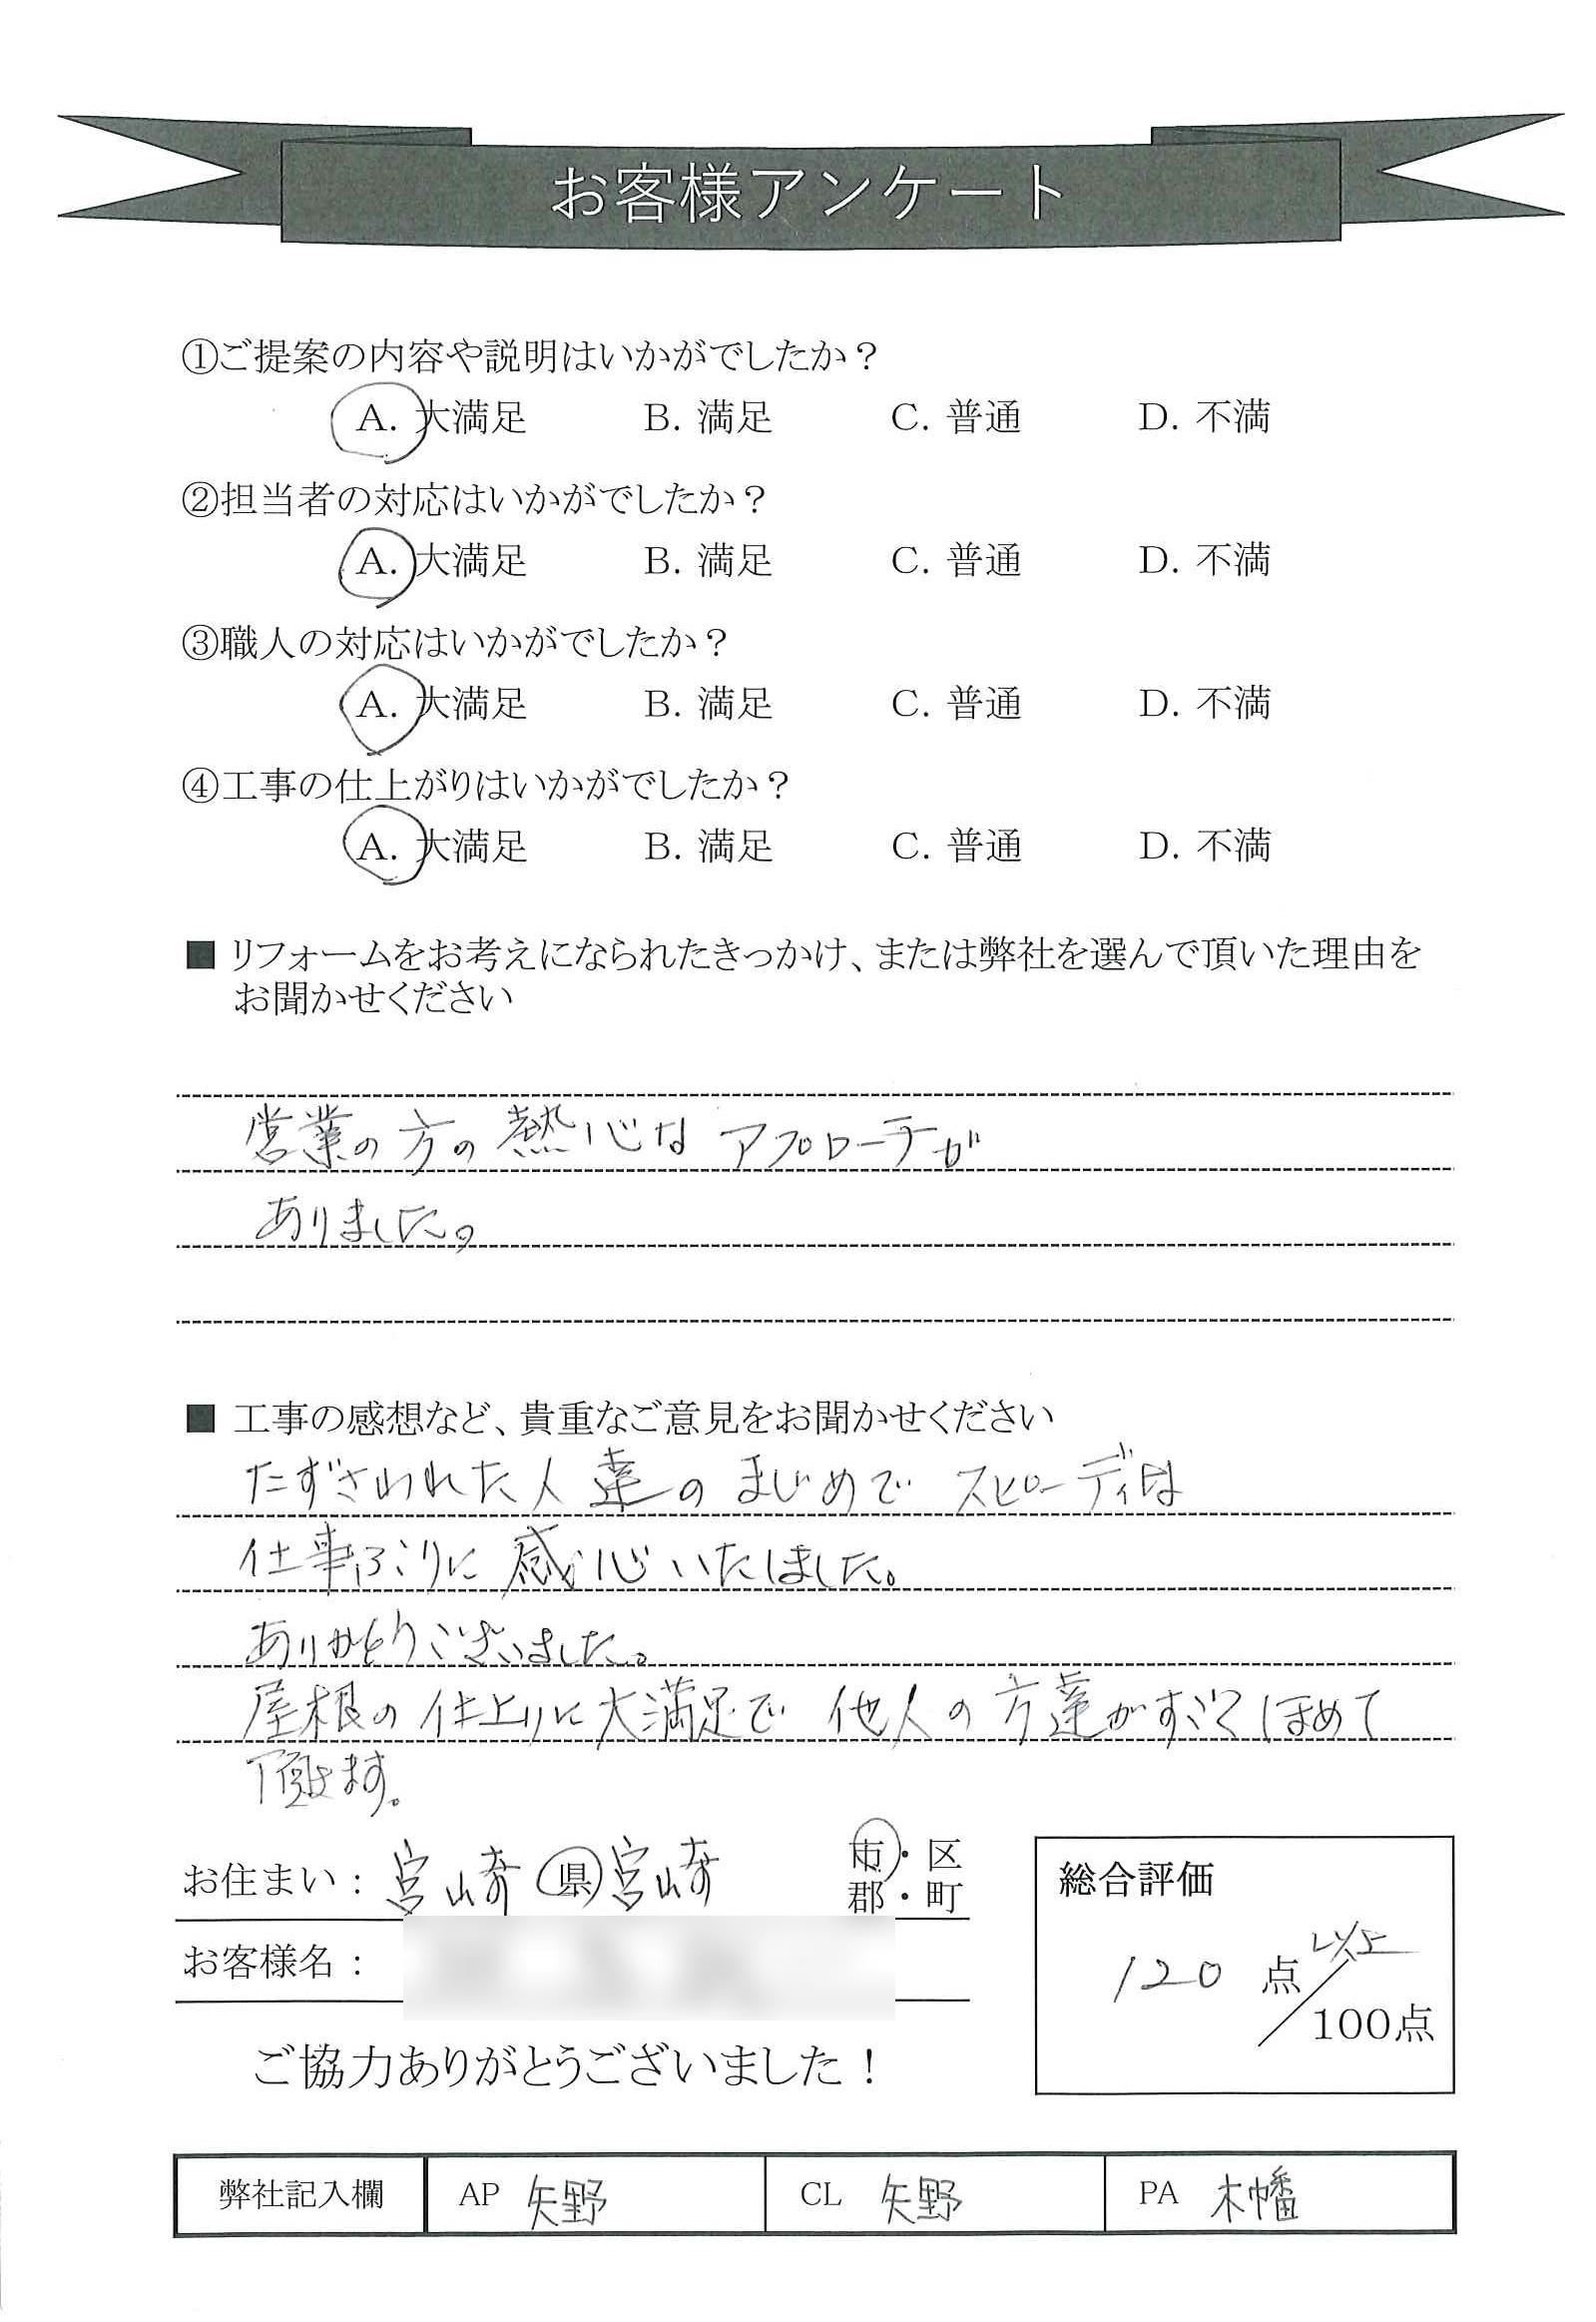 お客様アンケート
①ご提案の内容や説明はいかがでしたか？
A. 大満足 B. 満足 C. 普通 D. 不満
②担当者の対応はいかがでしたか？
A. 大満足 B. 満足 C. 普通 D. 不満
③職人の対応はいかがでしたか？
A. 大満足 B. 満足 C. 普通 D. 不満
④工事の仕上がりはいかがでしたか？
A. 大満足 B. 満足 C. 普通 D. 不満
■ リフォームをお考えになられたきっかけ、または弊社を選んで頂いた理由を
お聞かせください
営業の方の熱心なアプローチが
ありました。
■ 工事の感想など、貴重なご意見をお聞かせください
たずさわれた人達のまじめでスピーディな
仕事ぶりに感心いたしました。
ありがとうございました。
屋根の仕上りに大満足で他人の方達がすごくほめて
頂きます。
お住まい： 宮崎 県 宮崎 市・区
郡・町
お客様名：
ご協力ありがとうございました！
総合評価
120 点 以上
100点
弊社記入欄 AP 矢野 CL 矢野 PA 木幡